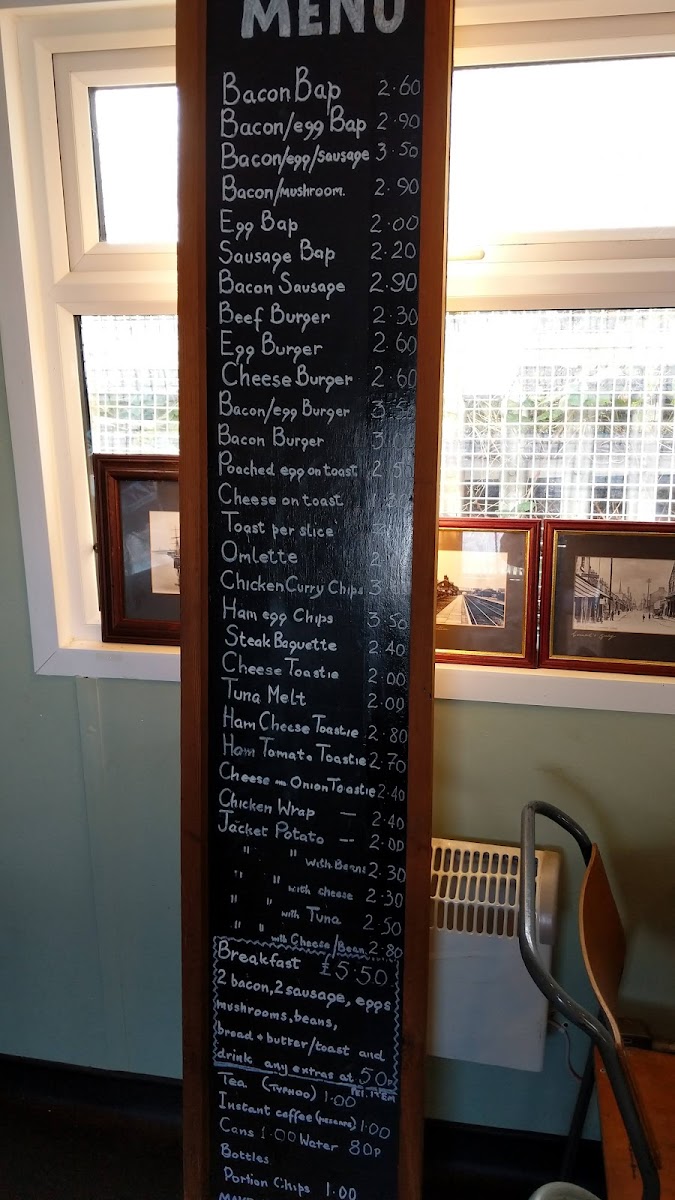 MENU
Bacon Bap 2.60
Bacon/egg Bap 2.90
Bacon/egg/sausage 3.50
Bacon/mushroom. 2.90
Egg Bap 2.00
Sausage Bap 2.20
Bacon Sausage 2.90
Beef Burger 2.30
Egg Burger 2.60
Cheese Burger 2.60
Bacon/egg Burger
Bacon Burger
Poached egg on toast
Cheese on toast
Toast per slice
Omlette
Chicken Curry Chips
Ham egg Chips 3.50
Steak Baguette 2.40
Cheese Toastie 2.00
Tuna Melt 2.00
Ham Cheese Toastie 2.80
Ham Tomato Toastie 2.70
Cheese Onion Toastie 2.40
Chicken Wrap — 2.40
Jacket Potato -- 2.00
" " with Beans 2.30
" " with cheese 2.30
" " with Tuna 2.50
" " with Cheese/Bean 2.80
Breakfast £5.50
2 bacon, 2 sausage, eggs
mushrooms, beans,
bread + butter/toast and
drink any extras at 50p
PER.ITEM
Tea (TYPHOO) 1.00
Instant coffee 1.00
Cans 1.00 Water 80p
Bottles
Portion Chips 1.00